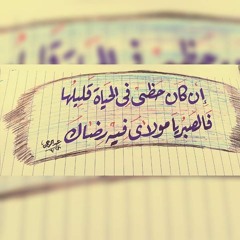 إن كان حظى فى الحياة قليلها
فالصبر يا مولاى فيه رضاك